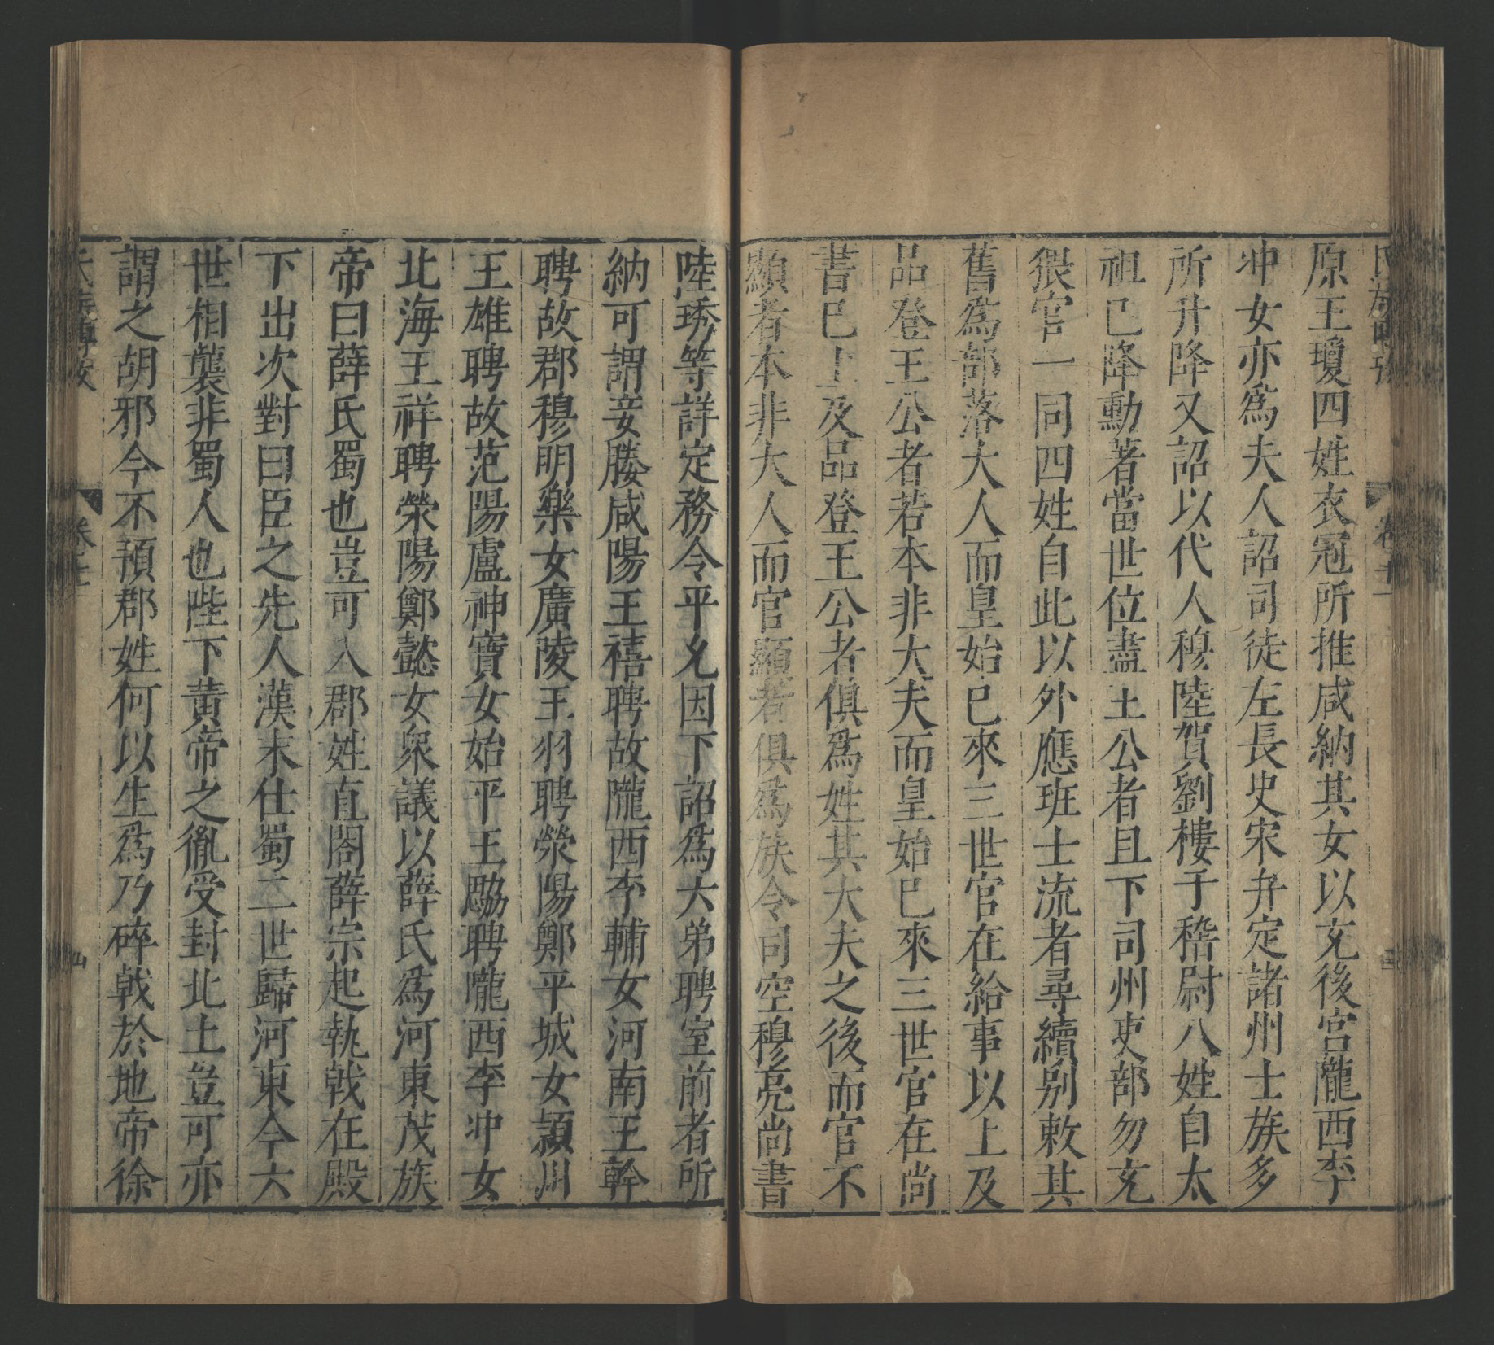 原王瓊四姓衣冠所推咸納其女以充後宮隴西李
冲女亦為夫人詔司徒左長史宋弁定諸州士族多
所升降又詔以代人穆陸賀劉樓于嵇尉八姓自太
祖已降勳著當世位盡王公者且下司州吏部勿充
猥官一同四姓自此以外應班士流者尋續別敕其
舊為部落大人而皇始已來三世官在給事以上及
品登王公者若本非大夫而皇始已來三世官在尚
書已上及品登王公者俱為姓其大夫之後而官不
顯者本非大人而官顯者俱為族令司空穆亮尚書
陸琇等詳定務令平允因下詔為大弟聘室前者所
納可謂妾媵咸陽王禧聘故隴西李輔女河南王幹
聘故郡穆明樂女廣陵王羽聘滎陽鄭平城女潁川
王雄聘故范陽盧神寶女始平王勰聘隴西李冲女
北海王祥聘榮陽鄭懿女衆議以薛氏為河東茂族
帝曰薛氏蜀也豈可入郡姓直閤薛宗起執戟在殿
下出次對曰臣之先人漢末仕蜀二世歸河東今六
世相襲非蜀人也陛下黃帝之胤受封北土豈可亦
謂之胡邪今不預郡姓何以生為乃碎戟於地帝徐